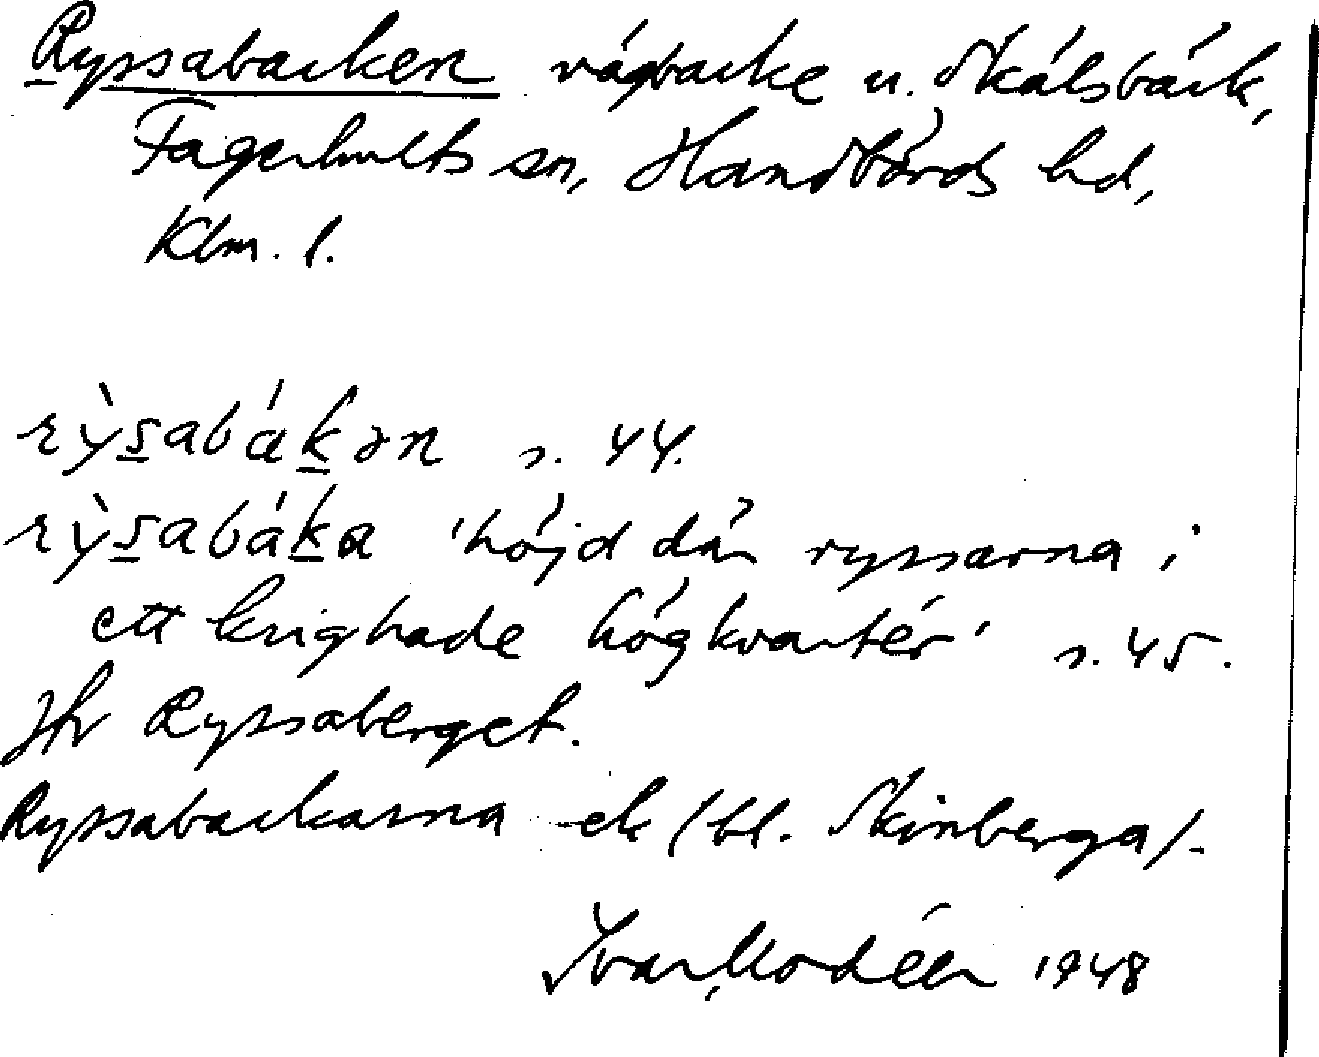 Ryssabacken vägbacke u. Skälsbäck,
Fagerhults sn, Handbörds hd,
Klm. l.
rỳsabákən s. 44.
rỳsabáka 'höjd där ryssarna i
ett krig hade högkvartér' s. 45.
Jfr Ryssaberget.
Ryssabackarna ek (bl. Skinberga).
Ivar Modéer 1948